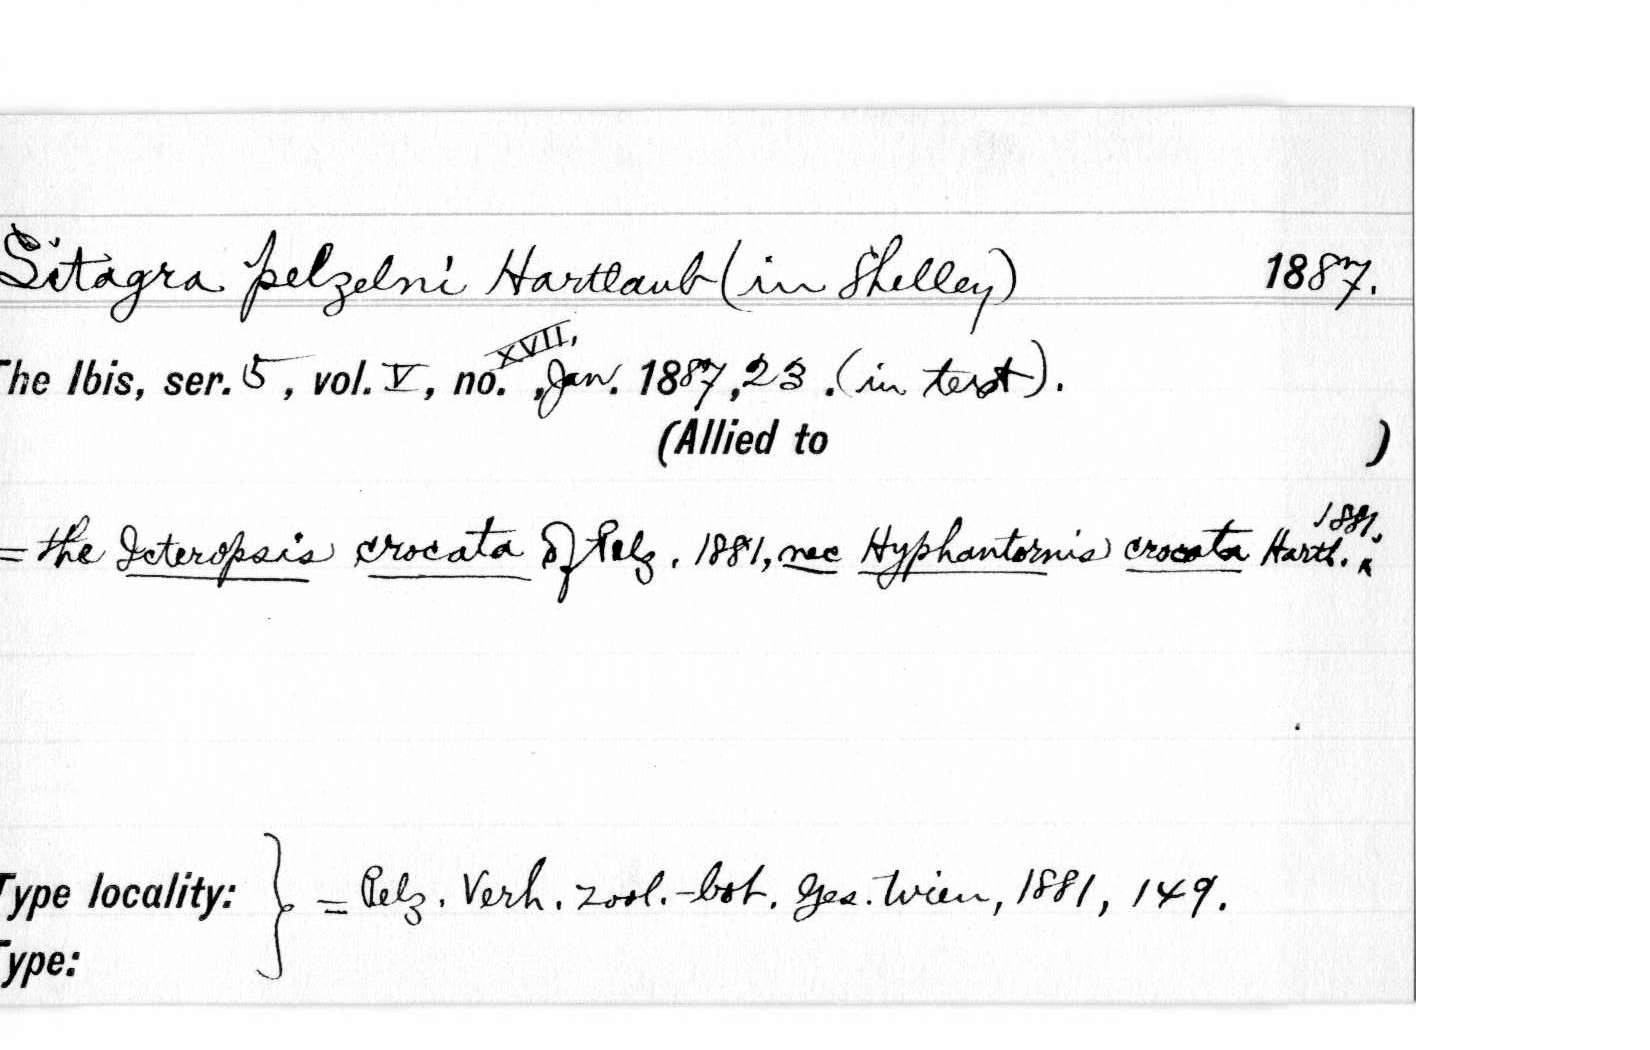 Sitagra pelzelni Hartlaub (in Shelley) 1887.
The Ibis, ser. 5, vol. V, no. XVII, Jan. 1887, 23. (in text).
(Allied to )
= the Icteropsis crocata of Pelz. 1881, nec Hyphantornis crocata Hartl. 1881.
Type locality: } = Pelz. Verh. zool.-bot. Ges. Wien, 1881, 149.
Type: